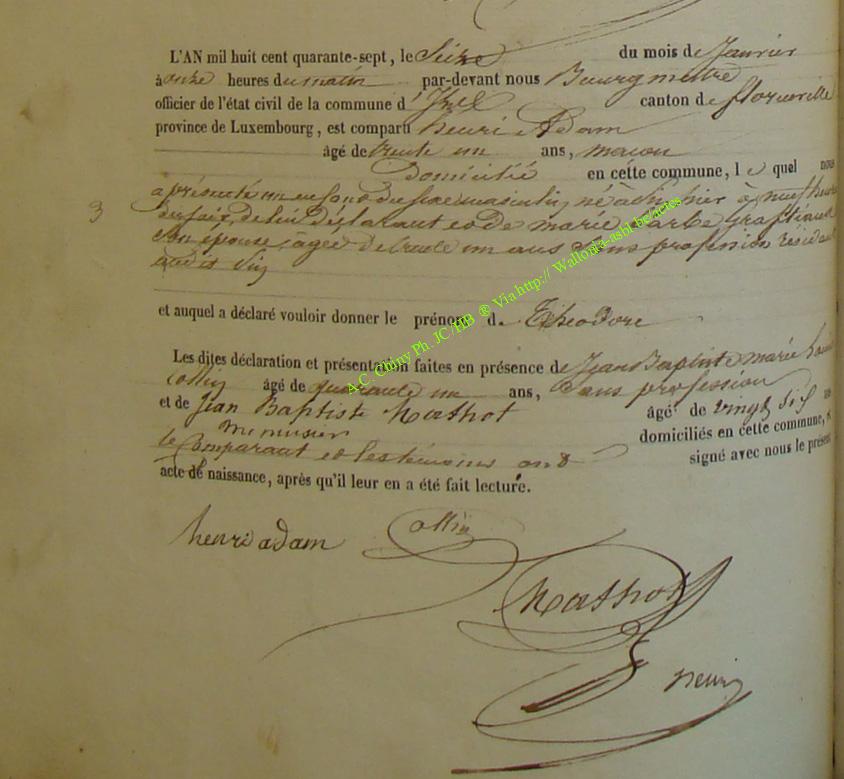 L'AN mil huit cent quarante-sept, le Seize du mois de Janvier
à onze heures du matin par-devant nous Bourgmettre
officier de l'état civil de la commune d' Izel canton de florenville
province de Luxembourg, est comparu henri Adam
âgé de trente un ans, macon
Domicilié en cette commune, l e quel nous
3
a présenté un enfant du sexe masculin né à hier à neuf heures
du soir, de lui déclarant et de marie barbe
son épouse, âgée de trente un ans sans profession résidant
audit
et auquel a déclaré vouloir donner le prénom de Théodore
Les dites déclaration et présentation faites en présence de Jean Baptiste marie
Collin âgé de quarante un ans, sans profession
et de Jean Baptiste Mathot âgé de vingt six
menuisier domiciliés en cette commune,
le Comparant et les témoins ont signé avec nous le présent
acte de naissance, après qu'il leur en a été fait lecture.
henri adam Collin
Mathot
A.C. Chiny Ph. JC/HB ® Via http:// Wallonia-asbl.be/actes